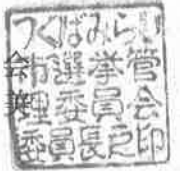 つくばみらい
市選挙管
理委員会
委員長之印
会
美